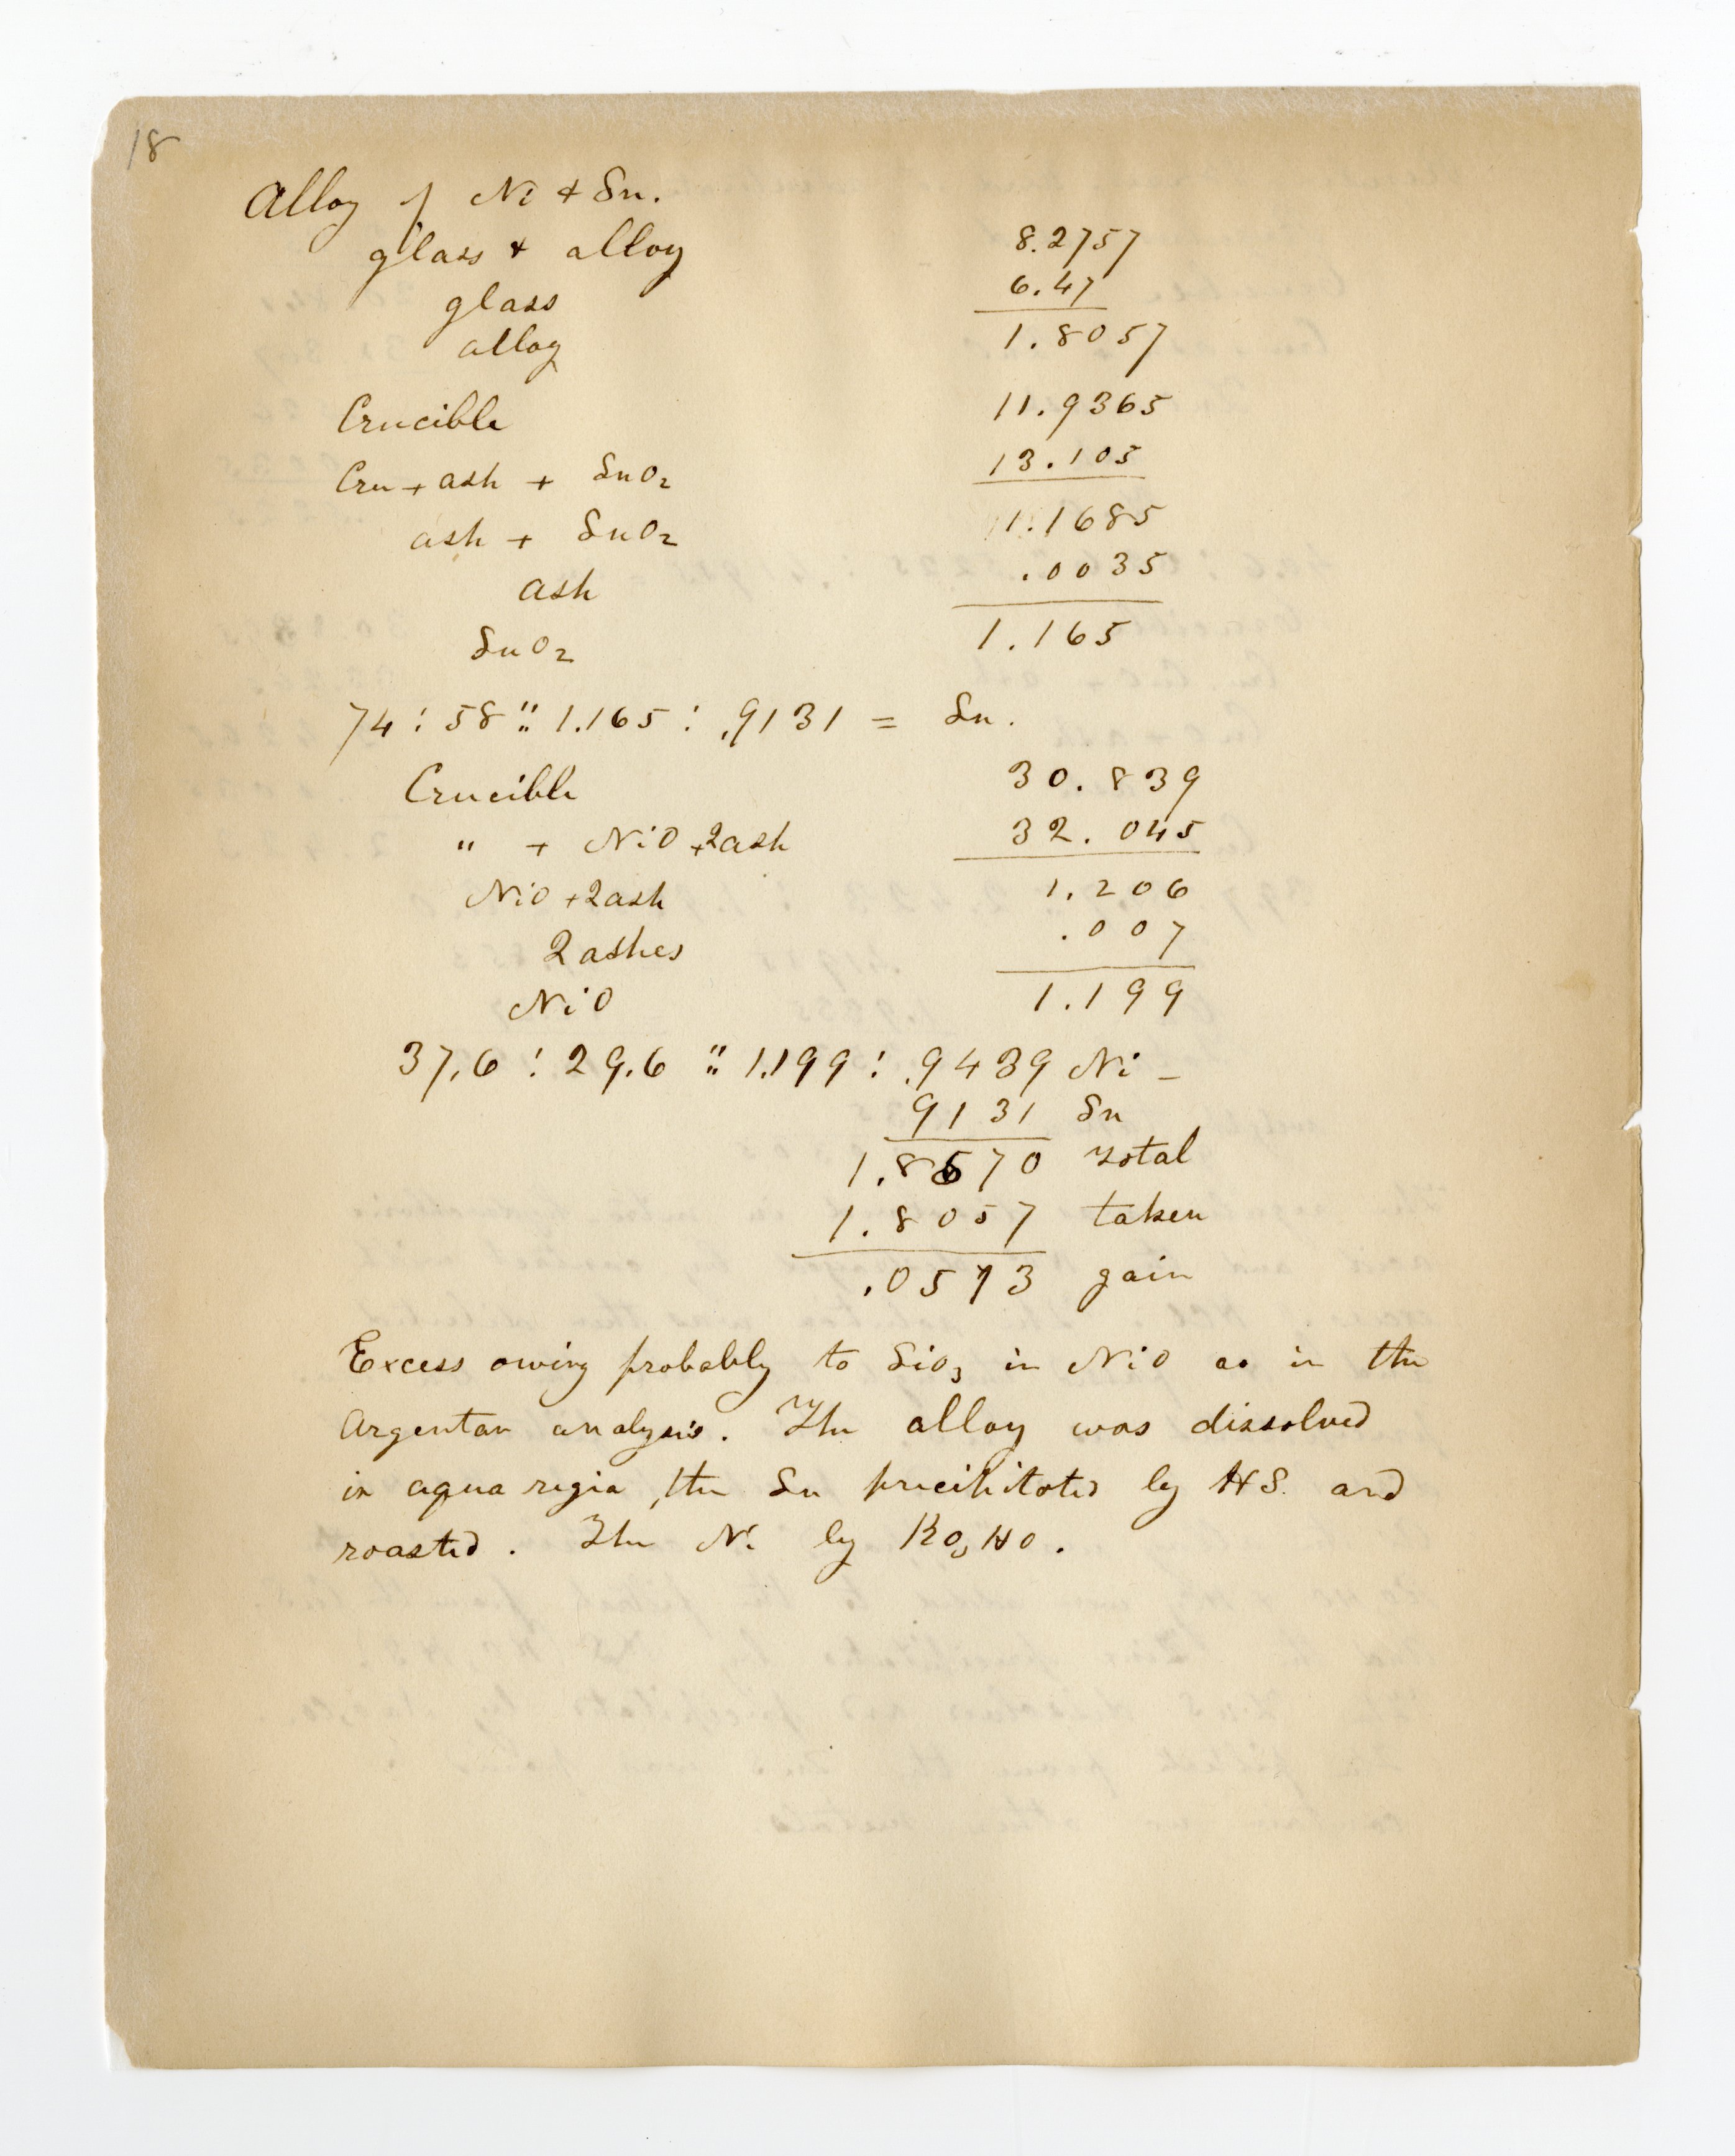 18
Alloy of Ni + Sn.
glass + alloy 8.2757
glass 6.47
alloy 1.8057
Crucible 11.9365
Cru + ash + SnO2 13.105
ash + SnO2 1.1685
ash .0035
SnO2 1.165
74 : 58 :: 1.165 : .9131 = Sn.
Crucible 30.839
" + NiO + 2ash 32.045
NiO + 2ash 1.206
2 ashes .007
NiO 1.199
37.6 : 29.6 :: 1.199 : .9439 Ni -
9131 Sn
1.8570 total
1.8057 taken
.0513 gain
Excess owing probably to SiO3 in NiO as in the
Argentan analysis. The alloy was dissolved
in aqua regia, the Sn precipitated by HS. and
roasted. The Ni by KO,HO.